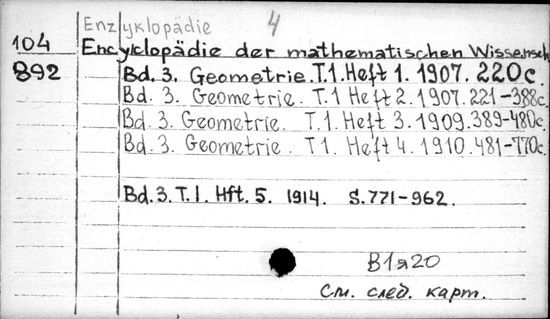 Enzyklopädie 4
104 Encyklopädie der mathematischen Wissensch
892 Bd. 3. Geometrie. T.1. Heft 1. 1907. 220c.
Bd. 3. Geometrie. T.1 Heft 2. 1907. 221-388c.
Bd. 3. Geometrie. T.1. Heft 3. 1909. 389-480c.
Bd. 3. Geometrie. T1. Heft 4. 1910. 481-770c.
Bd. 3. T. 1. Hft. 5. 1914. S. 771-962.
В1я20
См. след. карт.